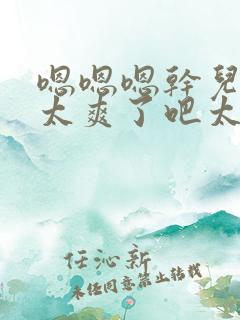 嗯嗯嗯幹兒
太爽了吧太
任沁新
未经同意禁止转载